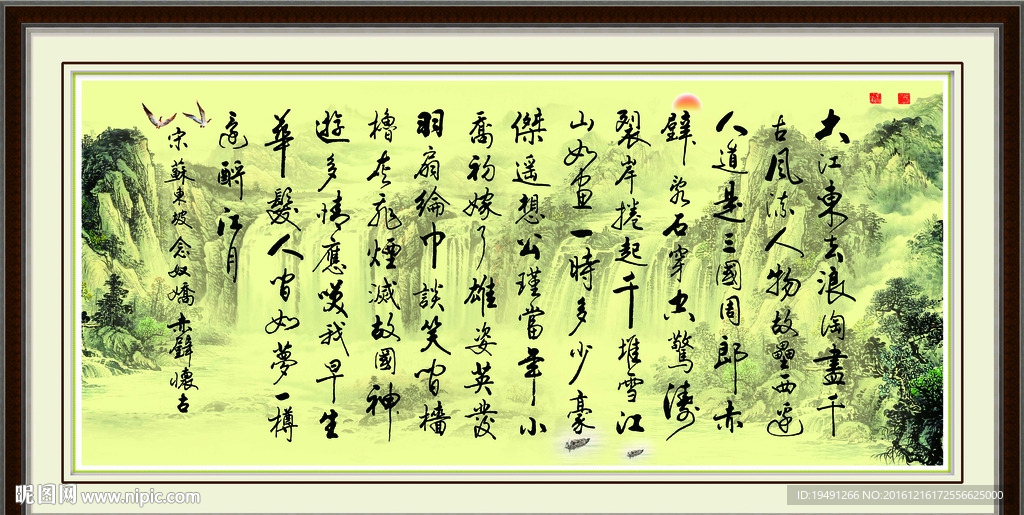 大江東去浪淘盡千
古風流人物故壘西邊
人道是三國周郎赤
壁亂石穿空驚濤
裂岸捲起千堆雪江
山如畫一時多少豪
傑遥想公瑾當年小
喬初嫁了雄姿英發
羽扇綸巾談笑間檣
櫓灰飛煙滅故國神
遊多情應笑我早生
華髮人間如夢一樽
還酹江月
宋蘇東坡念奴嬌赤壁懷古
昵图网 www.nipic.com
ID:19491266 NO:20161216172556625000